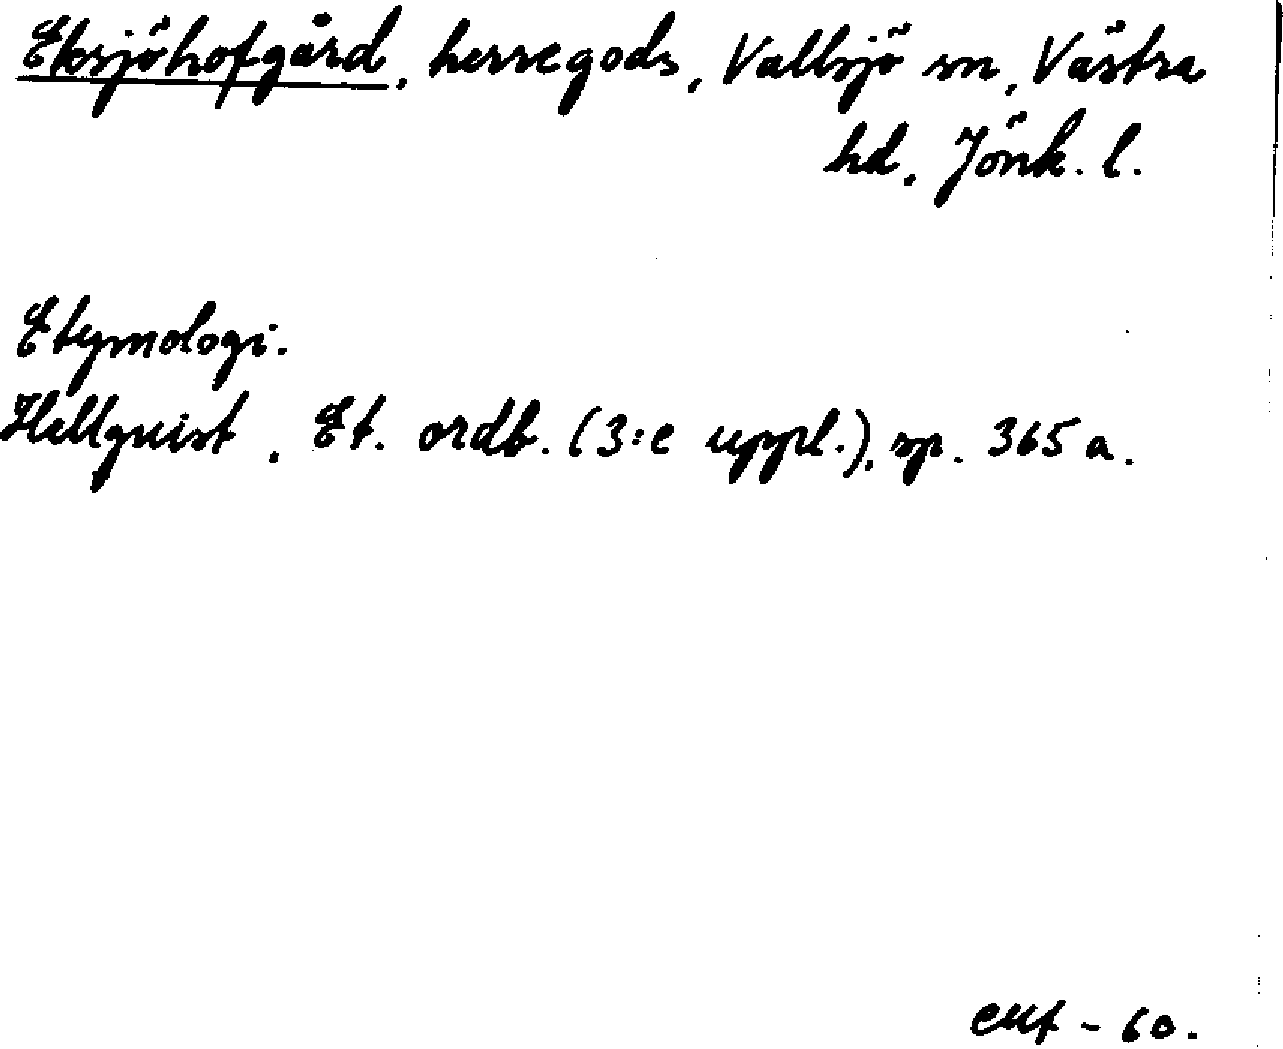 Eksjöhofgård, herregods, Vallsjö sn, Västra
hd, Jönk. l.
Etymologi.
Hellquist, Et. ordb. (3:e uppl.), sp. 365 a.
- 60.